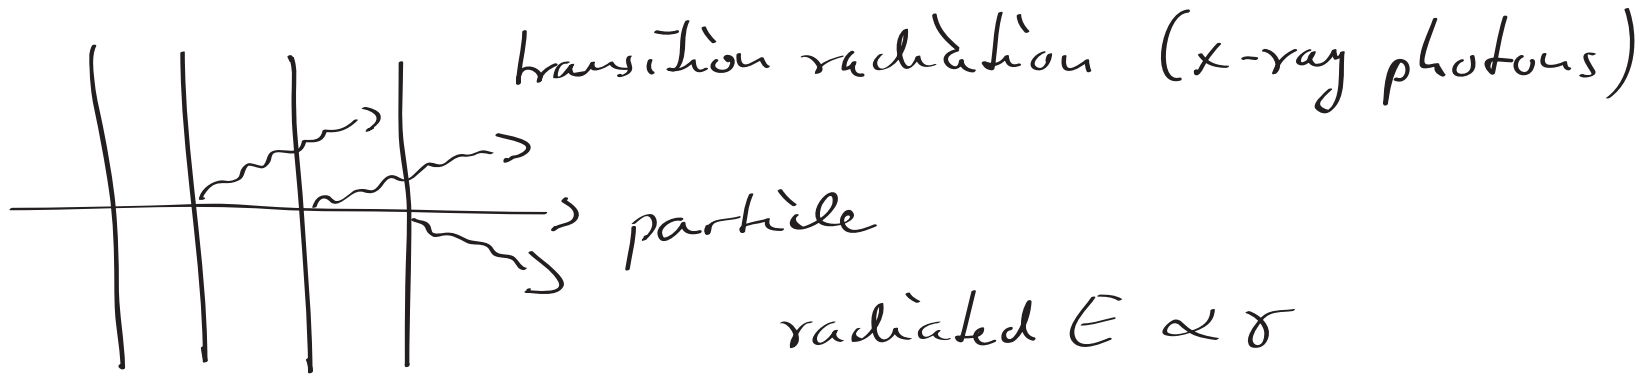 transition radiation (x-ray photons)
particle
radiated E ∝ γ